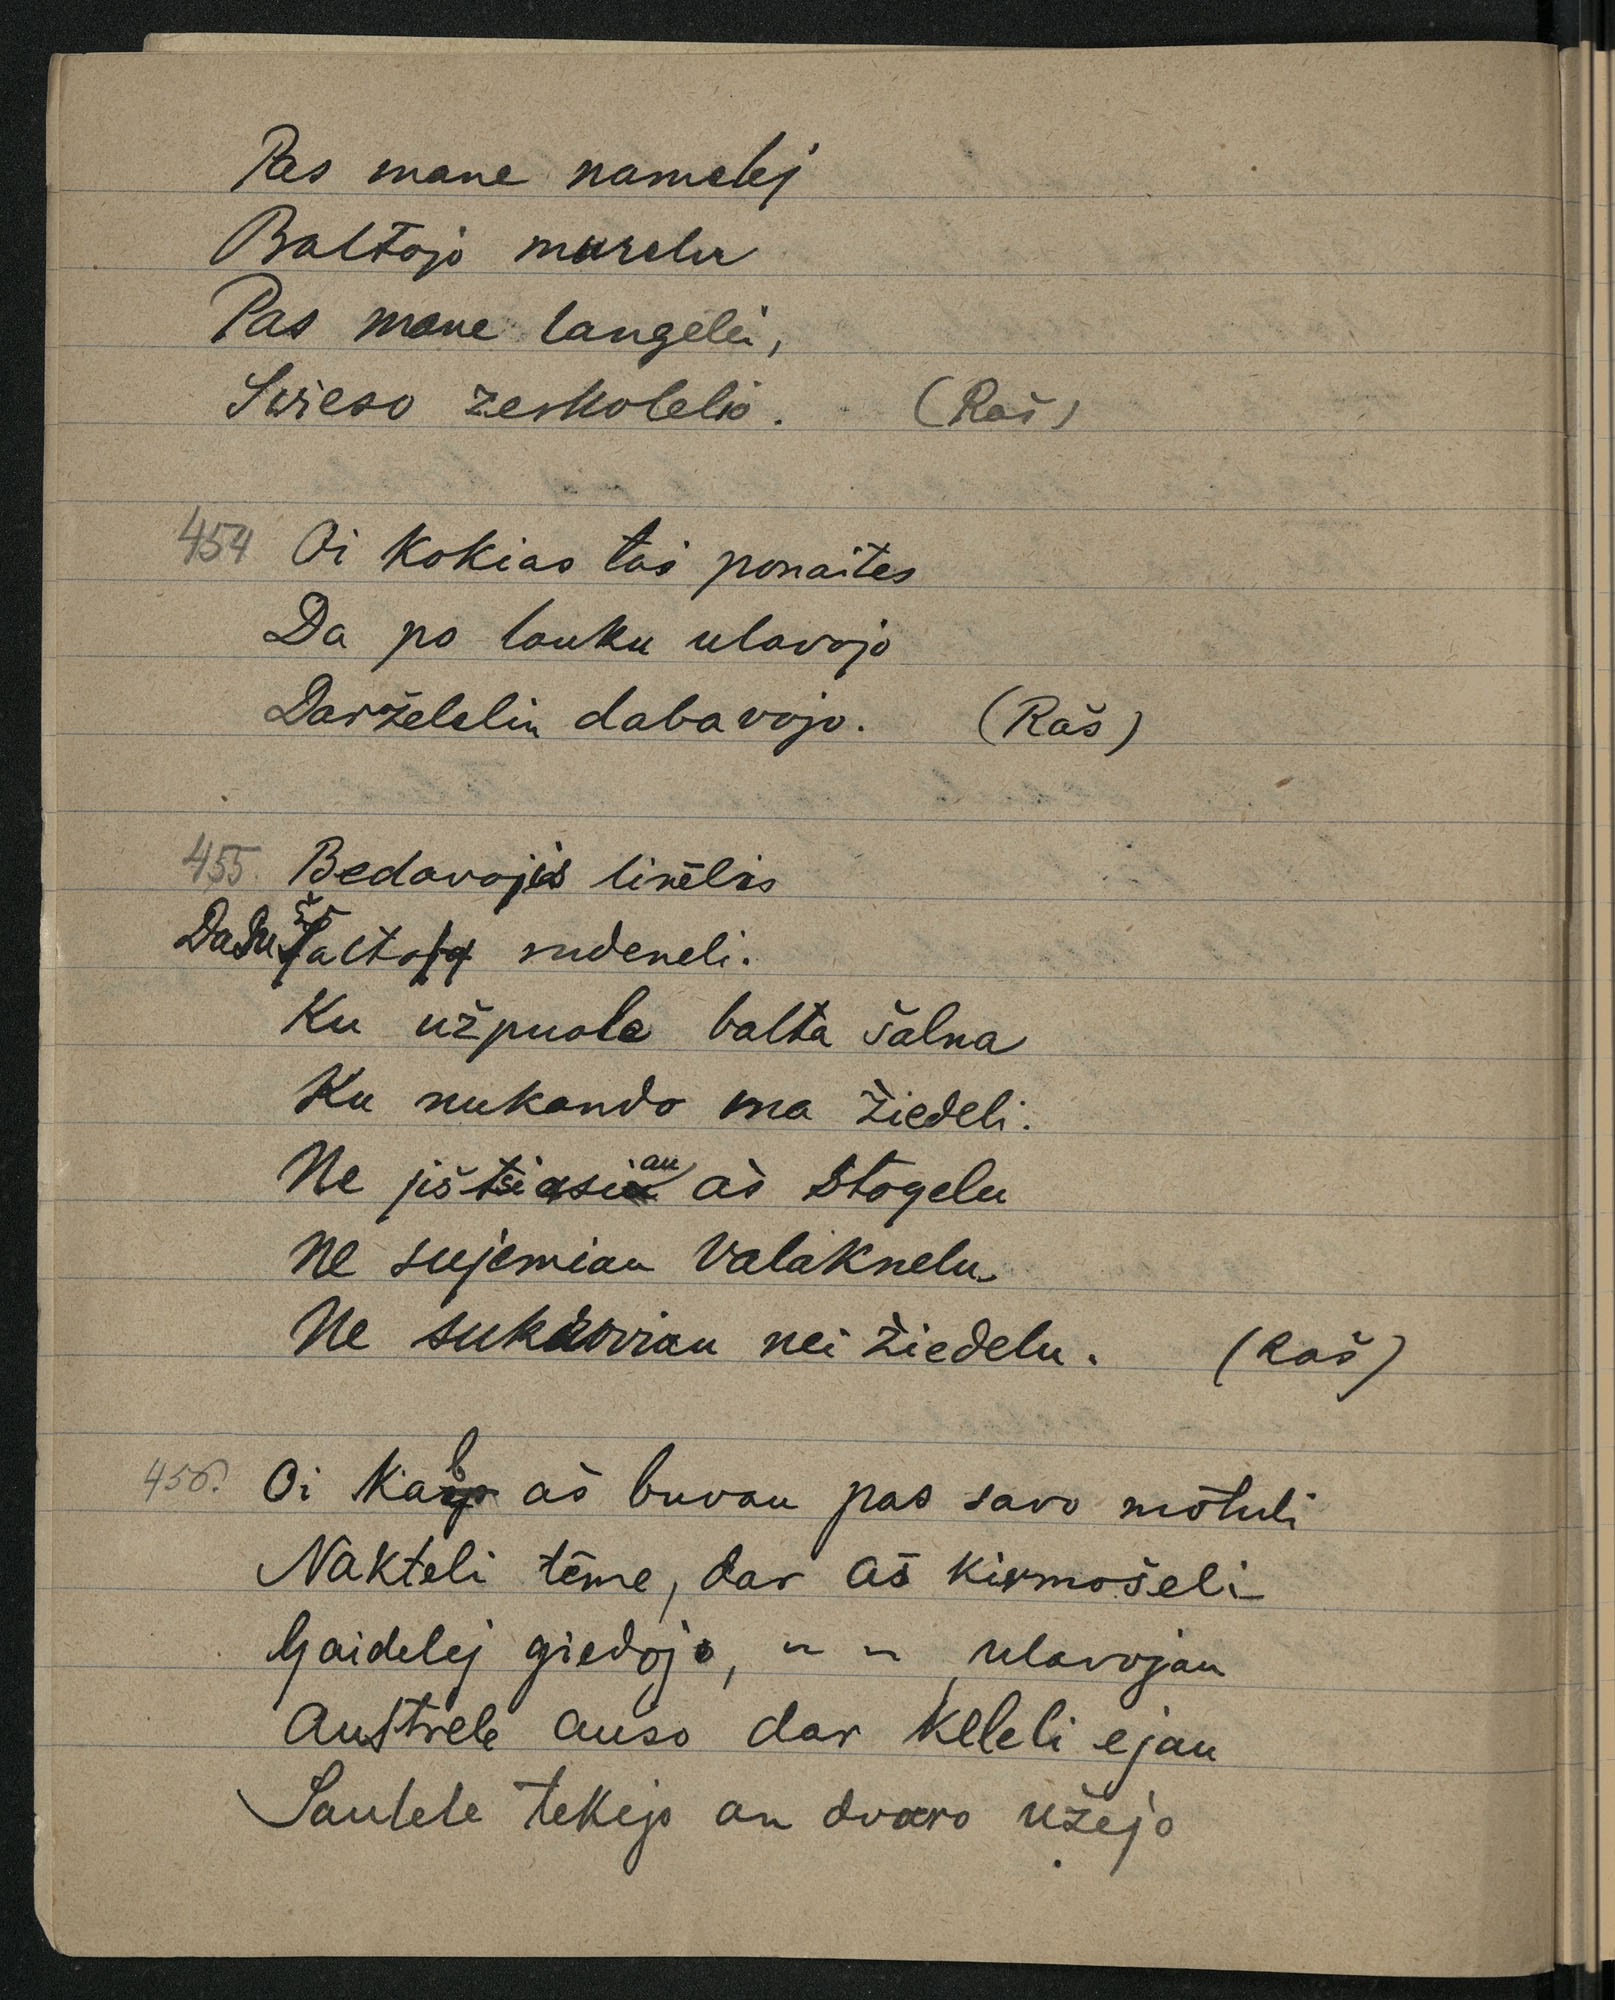 Pas mane namelej
Baltojo murelu
Pas mane langelei,
Swieso zerkolelio. (Raš)
454 Oi kokias tai ponaites
Da po lauku ulavojo
Darželelin dabavojo. (Raš)
455. Bedavojis linēlis
Da šu šalto rudeneli.
Ku užpuole balta šalna
Ku nukando ma žiedeli.
Ne aš stogelu
Ne sujemiau valaknelu
Ne sukroviau nei žiedelu. (Raš)
456. Oi kab aš buvau pas savo mōtuli
Nakteli tēme, dar aš kirmošeli
Gaidelej giedojo, " " ulavojau
Austrele auso dar keleli ejau
Saulele tekejo an dvaro užejo